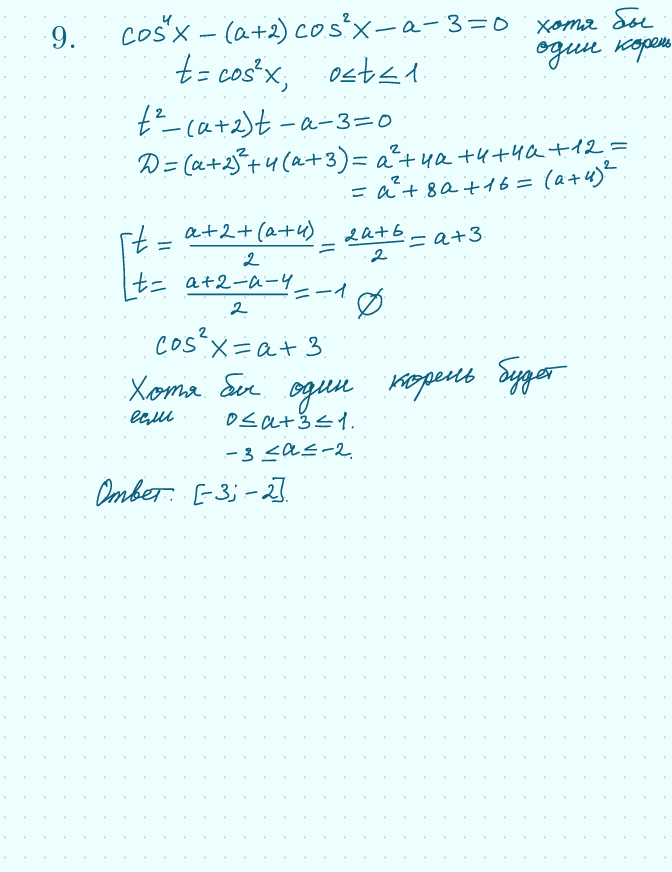 9. cos⁴x − (a+2) cos²x − a − 3 = 0 хотя бы
один корень
t = cos²x, 0 ≤ t ≤ 1
t² − (a+2)t − a − 3 = 0
D = (a+2)² + 4(a+3) = a² + 4a + 4 + 4a + 12 =
= a² + 8a + 16 = (a+4)²
t = (a+2+(a+4))/2 = (2a+6)/2 = a+3
t = (a+2−a−4)/2 = −1 ∅
cos²x = a + 3
Хотя бы один корень будет
если 0 ≤ a+3 ≤ 1.
−3 ≤ a ≤ −2.
Ответ: [−3; −2].